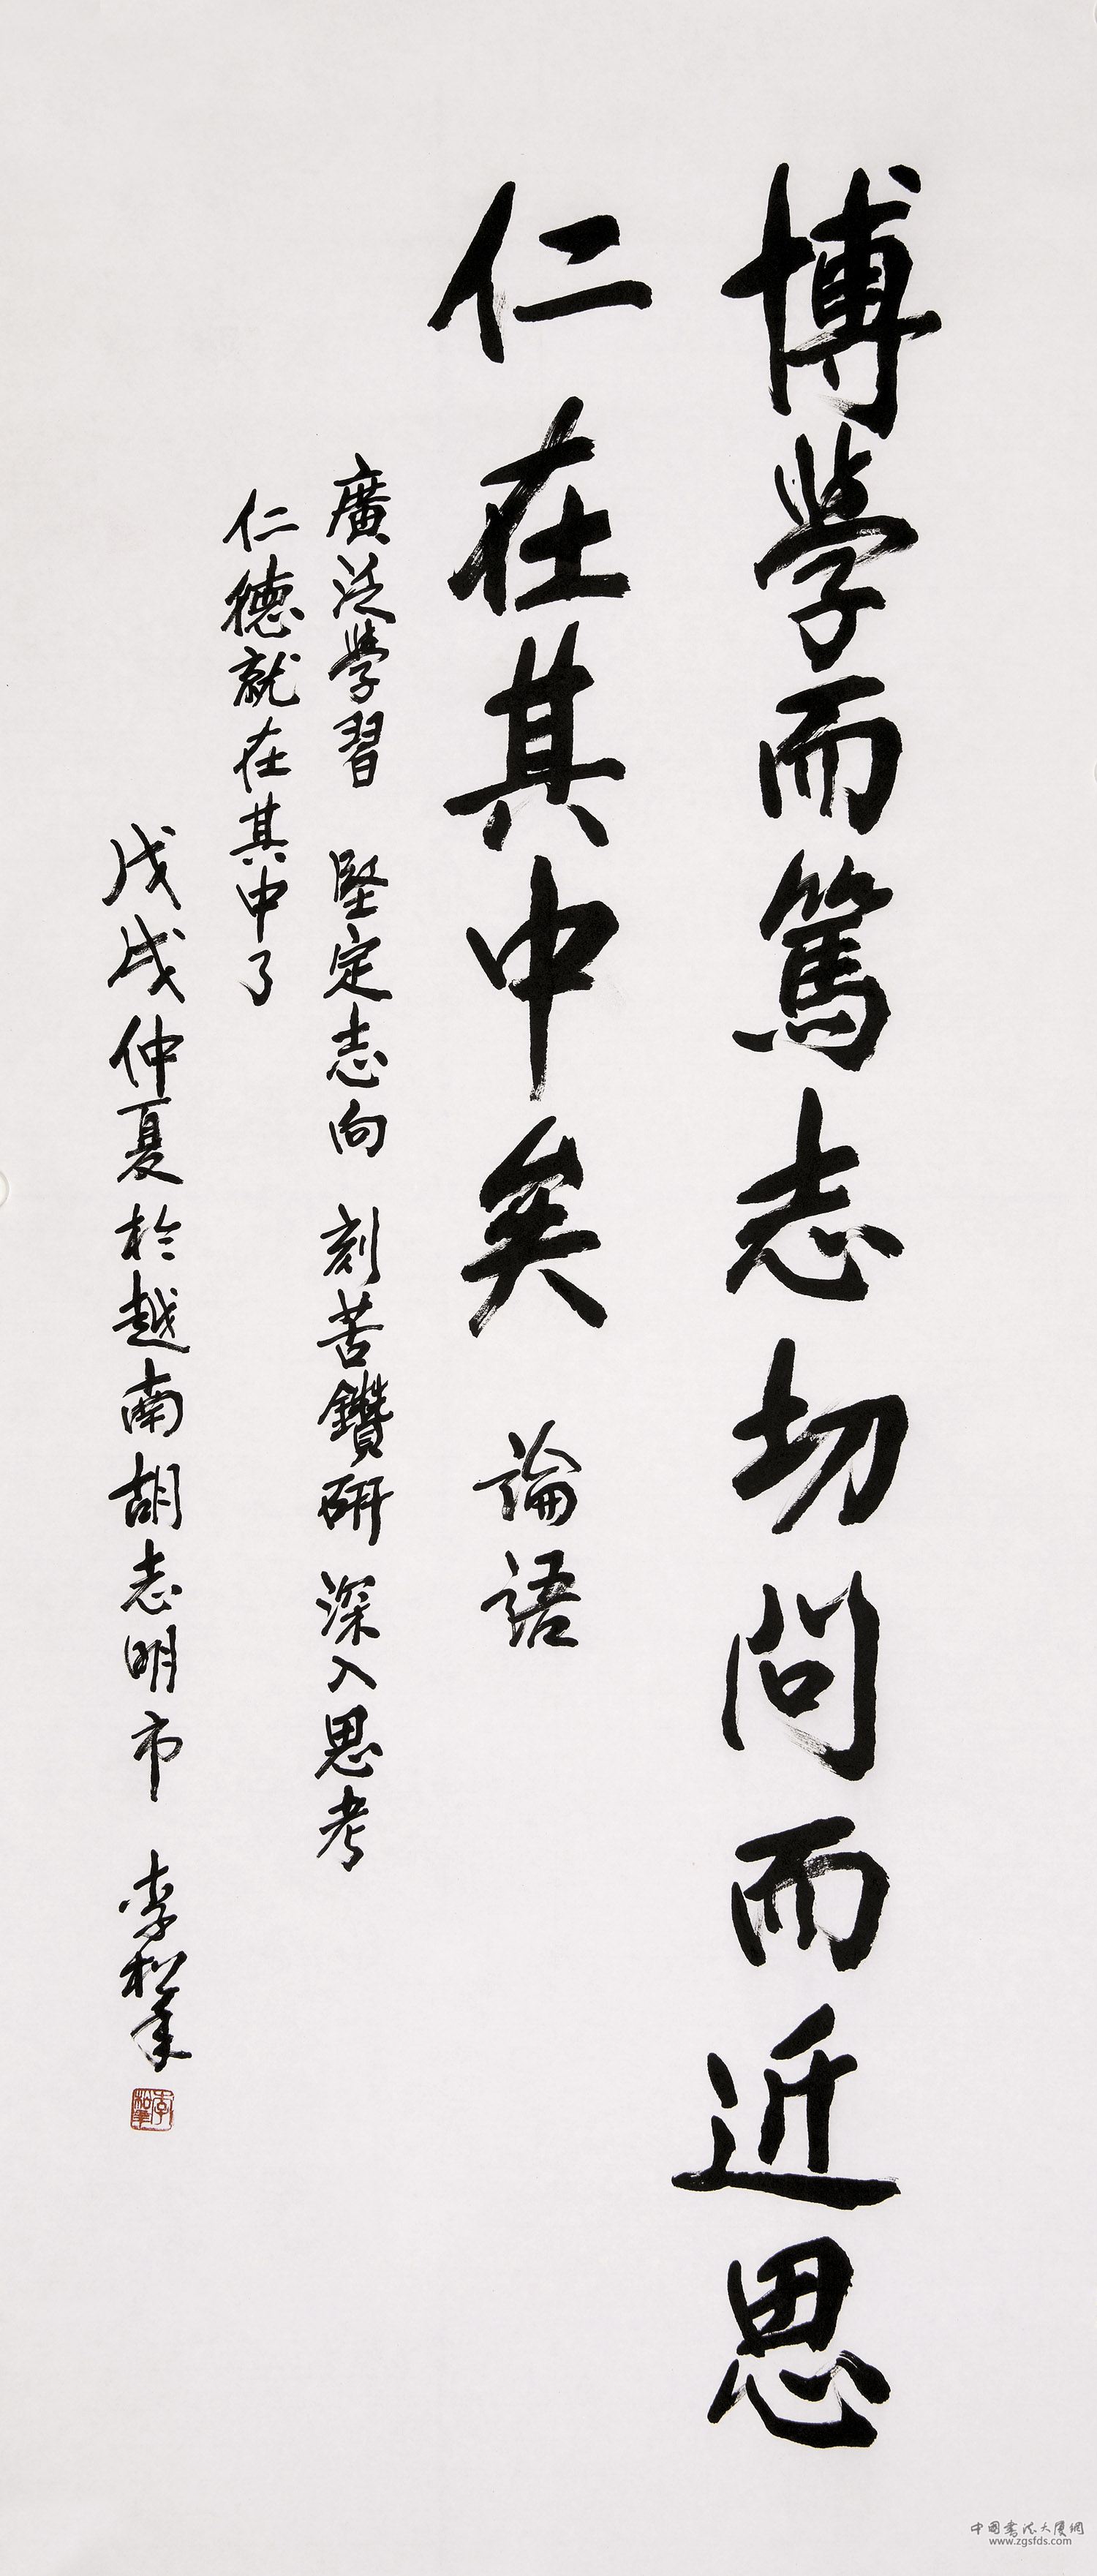 博學而篤志切問而近思
仁在其中矣 論語
廣泛學習 堅定志向 刻苦鑽研 深入思考
仁德就在其中了
戊戌仲夏於越南胡志明市 李松筆
李松筆
中国书法大厦網
www.zgsfds.com